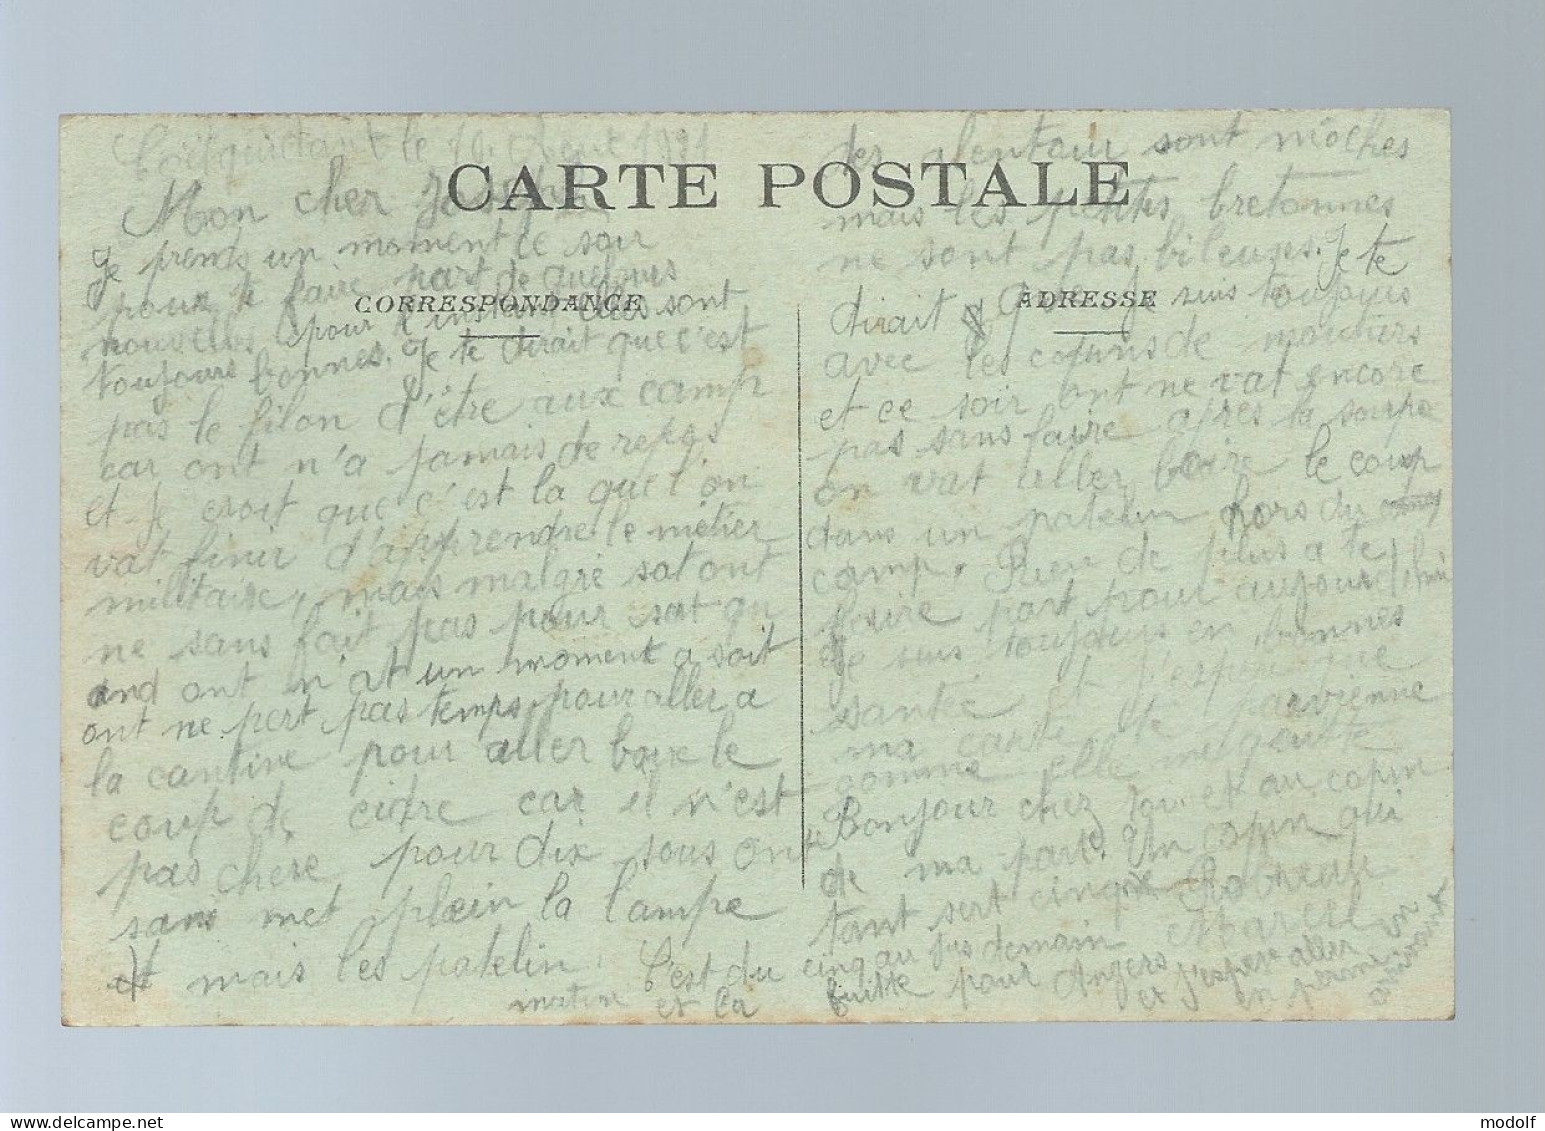 Coëtquidant le 10 Août 1921
CARTE POSTALE
CORRESPONDANCE
ADRESSE
Mon cher Joseph
Je prends un moment le soir
pour te faire part de quelques
nouvelles pour l'instant elles sont
toujours bonnes. Je te dirait que c'est
pas le filon d'être aux camp
car ont n'a jamais de repos
et je croit que c'est la que l'on
vat finir d'apprendre le métier
militaire, mais malgré sat ont
ne sans fait pas pour sat qu
and ont n'at un moment a soit
ont ne pert pas temps, pour aller a
la cantine pour aller boire le
coup de cidre car il n'est
pas chère pour dix sous on
sans met plein la lampe
mais les patelin
les alentour sont môches
mais les petites bretonnes
ne sont pas bileuses. Je te
dirait que je suis toujours
avec les copins de moutiers
et ce soir ont ne vat encore
pas sans faire après la soupe
on vat aller boire le coup
dans un patelin hors du
camp. Rien de plus a te
faire part pour aujourd'hui
Je suis toujours en bonnes
santée et j'espère que
ma carte te parvienne
comme elle me quitte
Bonjour chez toi et au copin
de ma part. Un copin qui
tant sert cinque Robreau
Marcel
C'est du cinq au jus demain
matin et la fuitte pour Angers
et j'espère aller
en perme en
arrivant
modolf